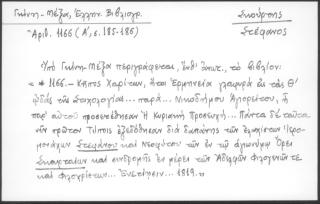 Γκίνη-Μέξα, Ἑλλην. Βιβλιογρ. Σκούρτης
Ἀριθ. 1166 (Α', σ. 185-186) Στέφανος
Ὑπὸ Γκίνη-Μέξα περιγράφεται, ἔνθ' ἀνωτ., τὸ βιβλίον:
« * 1166.— Κῆπος Χαρίτων, ἤτοι Ἑρμηνεία γλαφυρὰ εἰς τὰς Θ'
ᾠδὰς τῆς Στιχολογίας... παρὰ... Νικοδήμου Ἁγιορείτου, ᾗ
παρ' αὐτοῦ προσετέθησαν ἡ Κυριακὴ Προσευχὴ... Πάντα δὲ ταῦτα
νῦν πρῶτον Τύποις ἐξεδόθησαν διὰ δαπάνης τῶν ἐλαχίστων Ἱερο-
μονάχων Στεφάνου καὶ Νεοφύτου τῶν ἐν τῷ ἁγιωνύμῳ Ὄρει
Σκουρταίων καὶ συνδρομῆς ἐν μέρει τῶν Ἀδελφῶν Φιλογενῶν τε
καὶ Φιλοχρίστων... Ἐνετίησιν... 1819.»